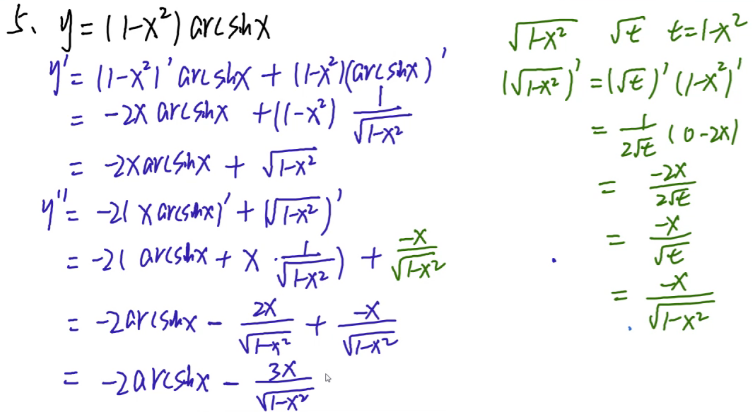 5、y=(1-x²)arcsinx
y'=(1-x²)'arcsinx+(1-x²)(arcsinx)'
=-2xarcsinx+(1-x²)\frac{1}{\sqrt{1-x²}}
=-2xarcsinx+\sqrt{1-x²}
y''=-2(xarcsinx)'+(\sqrt{1-x²})'
=-2(arcsinx+x·\frac{1}{\sqrt{1-x²}})+\frac{-x}{\sqrt{1-x²}}
=-2arcsinx-\frac{2x}{\sqrt{1-x²}}+\frac{-x}{\sqrt{1-x²}}
=-2arcsinx-\frac{3x}{\sqrt{1-x²}}
\sqrt{1-x²} \sqrt{t} t=1-x²
(\sqrt{1-x²})'=(\sqrt{t})'(1-x²)'
=\frac{1}{2\sqrt{t}}(0-2x)
=\frac{-2x}{2\sqrt{t}}
=\frac{-x}{\sqrt{t}}
=\frac{-x}{\sqrt{1-x²}}